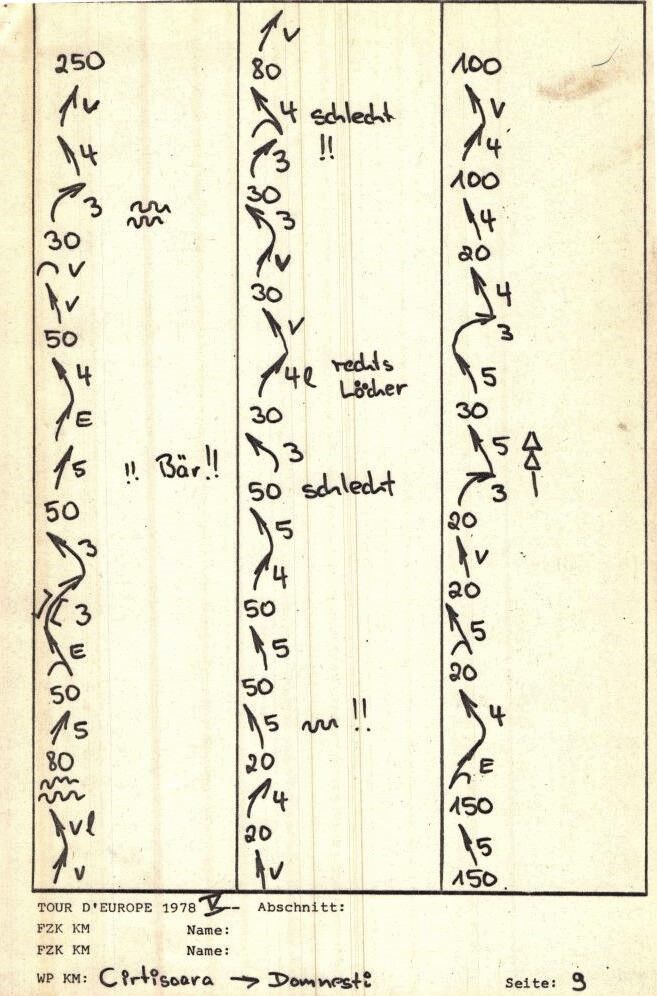 250
v
4
3
30
v
v
50
4
E
5 !! Bär!!
50
3
3
E
50
5
80
vl
v
v
80
4 schlecht
3 !!
30
3
v
30
v
4l rechts
Löcher
30
3
50 schlecht
5
4
50
5
50
5 !!
20
4
20
v
100
v
4
100
4
20
4
3
5
30
5
3
20
v
20
5
20
4
E
150
5
150
TOUR D'EUROPE 1978 V Abschnitt:
FZK KM Name:
FZK KM Name:
WP KM: Cirtisoara → Domnesti Seite: 9